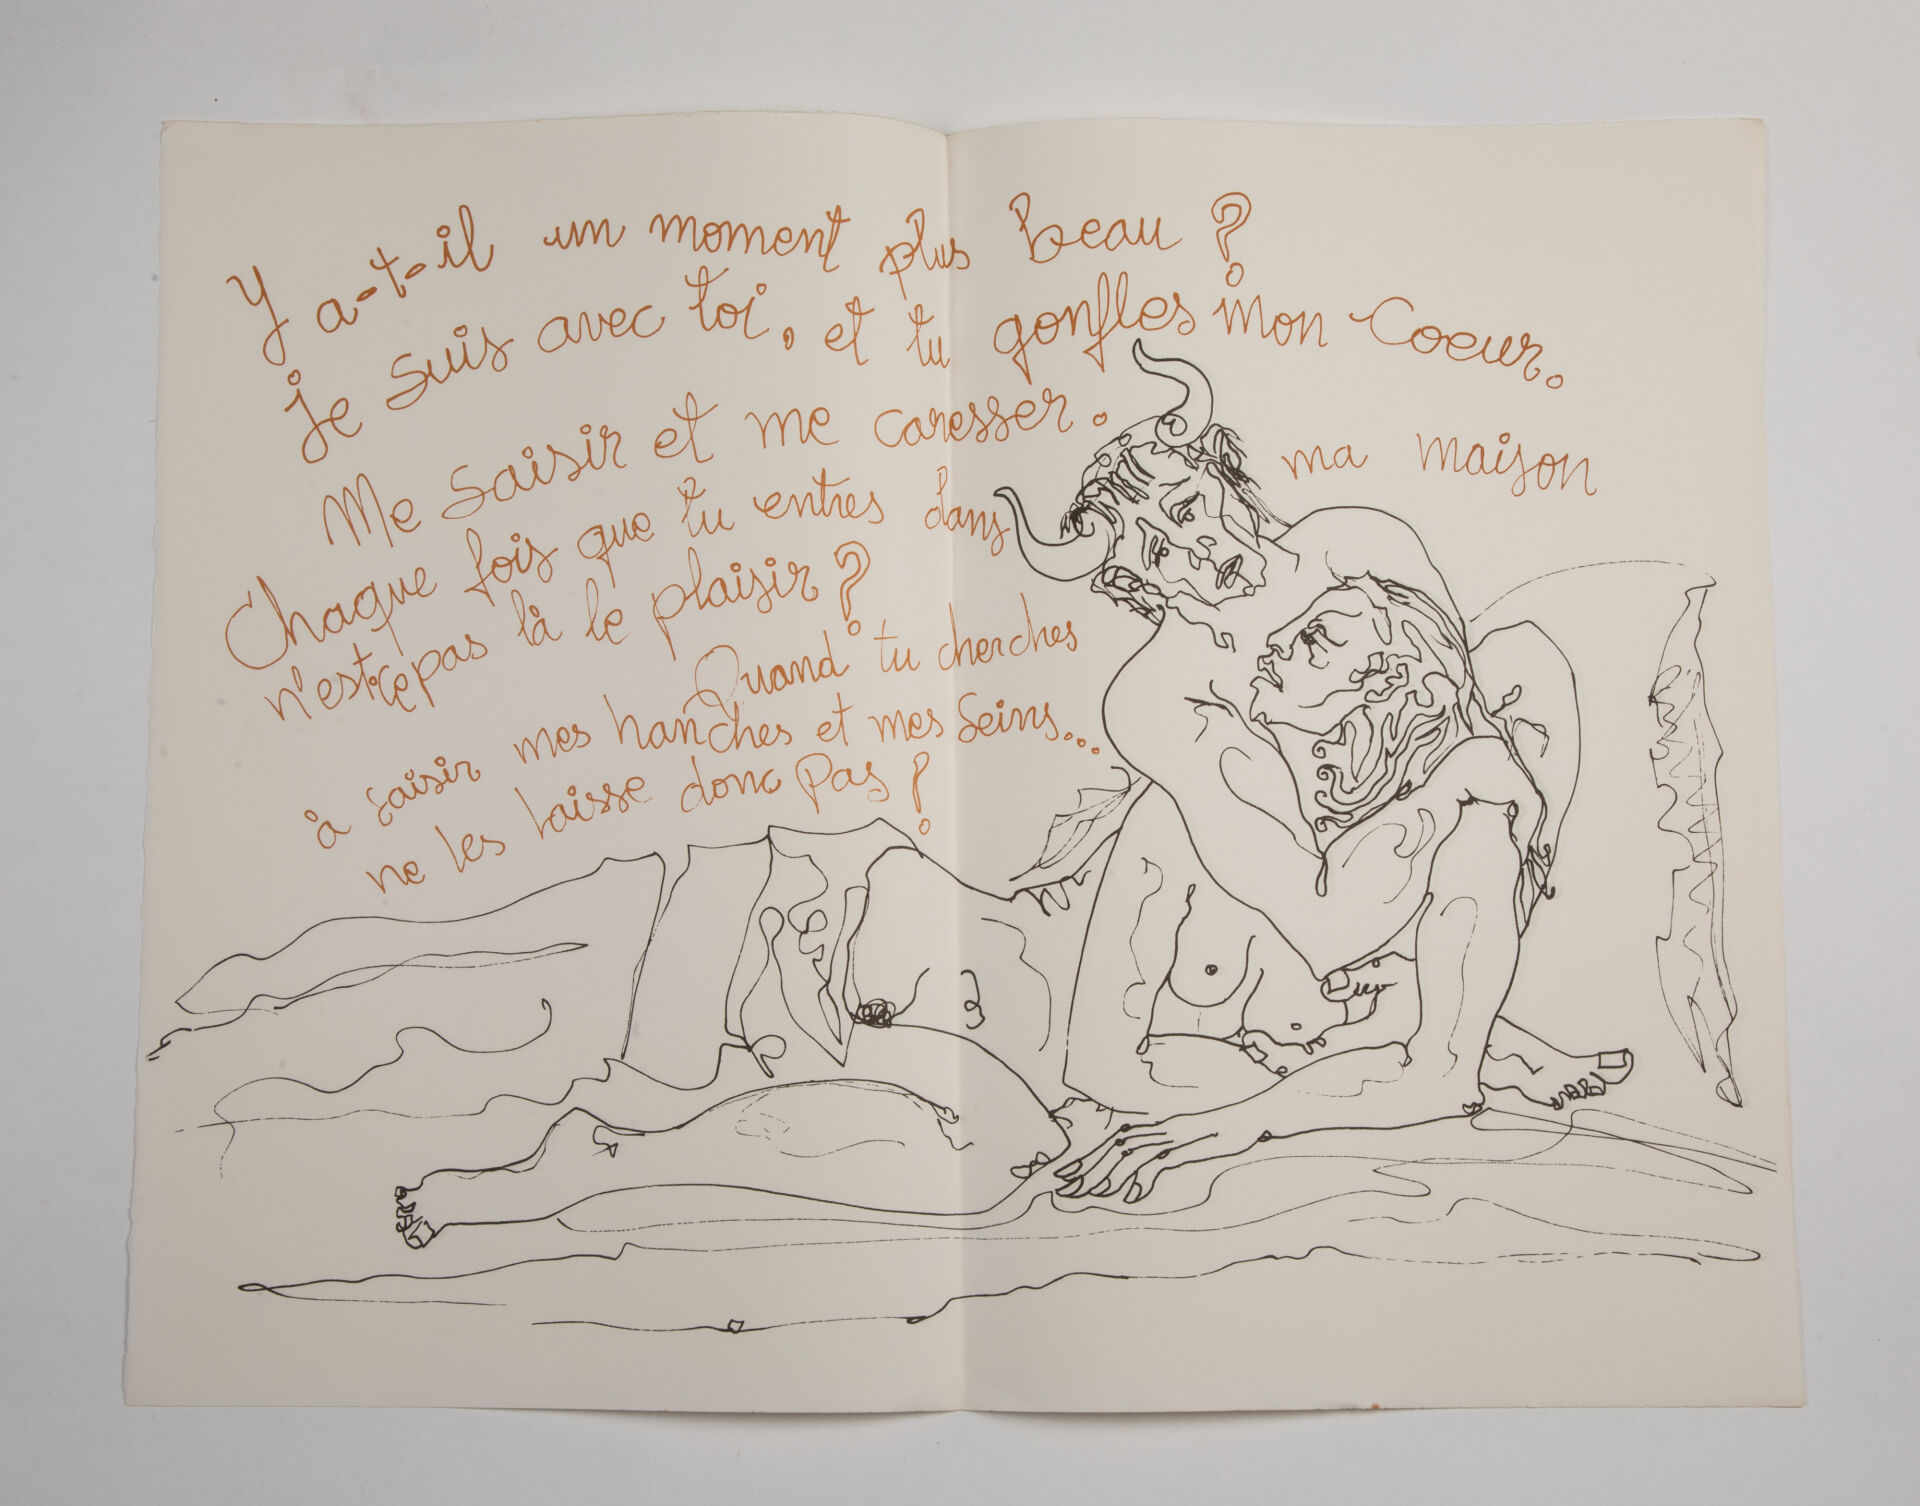 Y a-t-il un moment plus beau ?
je suis avec toi, et tu gonfles mon coeur.
Me saisir et me caresser.
Chaque fois que tu entres dans ma maison
n'est-ce pas là le plaisir ?
Quand tu cherches
à saisir mes hanches et mes seins...
ne les laisse donc pas !